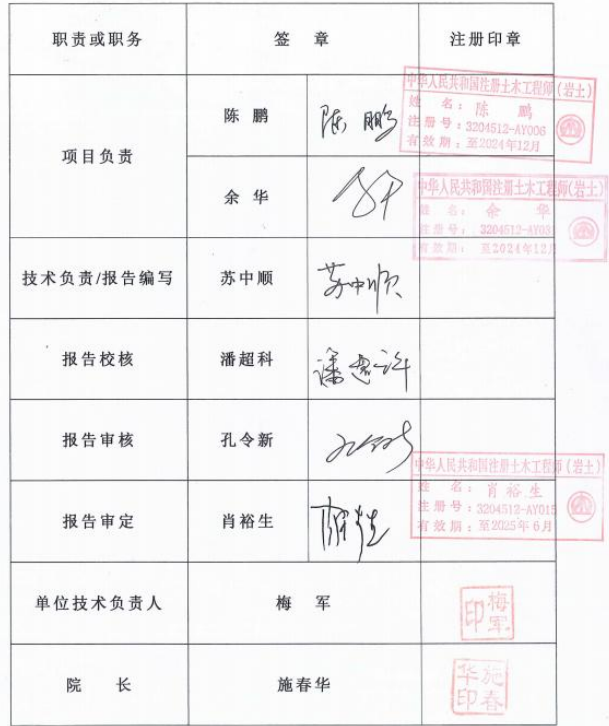 职责或职务 签 章 注册印章
项目负责
陈 鹏 陈鹏
中华人民共和国注册土木工程师(岩土)
姓 名：陈 鹏
注册号：3204512-AY006
有效期：至2024年12月
余 华
中华人民共和国注册土木工程师(岩土)
姓 名：余 华
注册号：3204512-AY031
有效期：至2024年12月
技术负责/报告编写 苏中顺 苏中顺
报告校核 潘超科
报告审核 孔令新
报告审定 肖裕生
中华人民共和国注册土木工程师(岩土)
姓 名：肖裕生
注册号：3204512-AY015
有效期：至2025年6月
单位技术负责人 梅 军
梅军印
院 长 施春华
施春华印